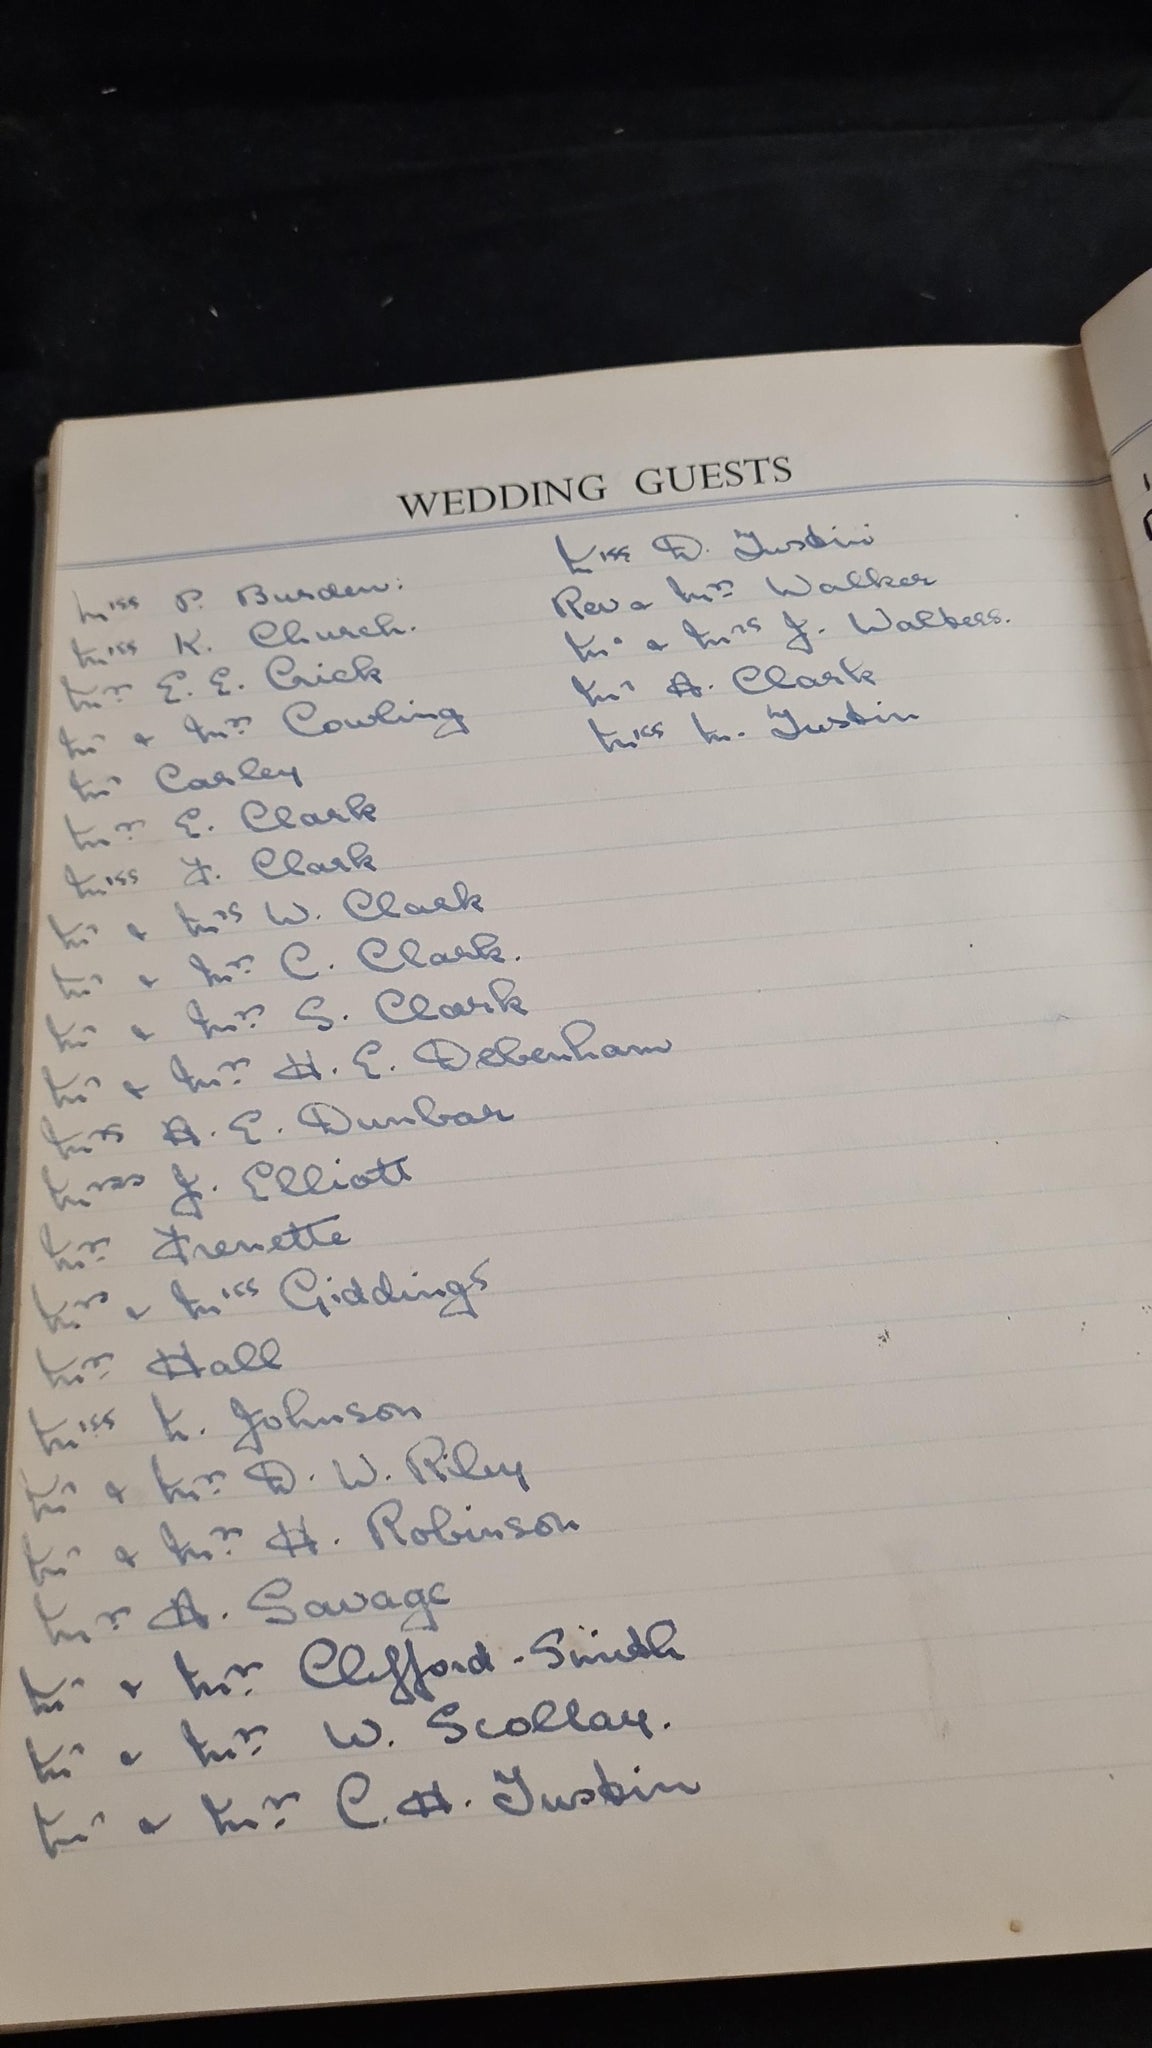 WEDDING GUESTS
Miss P. Burden.
Miss K. Church.
Mrs E. E. Crick
Mr & Mrs Cowling
Mr Carley
Mrs E. Clark
Miss F. Clark
Mr & Mrs W. Clark
Mr & Mrs C. Clark.
Mr & Mrs S. Clark
Mr & Mrs H. E. Debenham
Mrs A. E. Dunbar
J. Elliott
Mrs Frenette
Mrs & Miss Giddings
Mrs Hall
Miss M. Johnson
Mr & Mrs D. W. Riley
Mr & Mrs H. Robinson
Mrs A. Savage
Mr & Mrs Clifford-Smith
Mr & Mrs W. Scollay.
Mr & Mrs C. H. Tustin
Miss D. Tustin
Rev & Mrs Walker
Mr & Mrs J. Walters.
Mr A. Clark
Miss M. Tustin